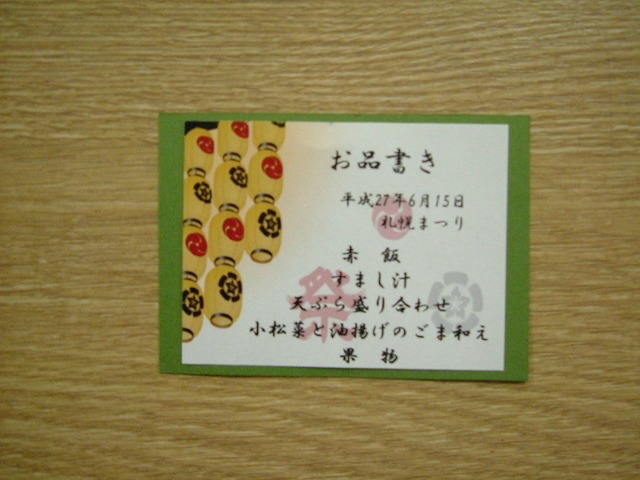 お品書き
平成27年6月15日
札幌まつり
赤 飯
すまし汁
天ぷら盛り合わせ
小松菜と油揚げのごま和え
果 物
祭